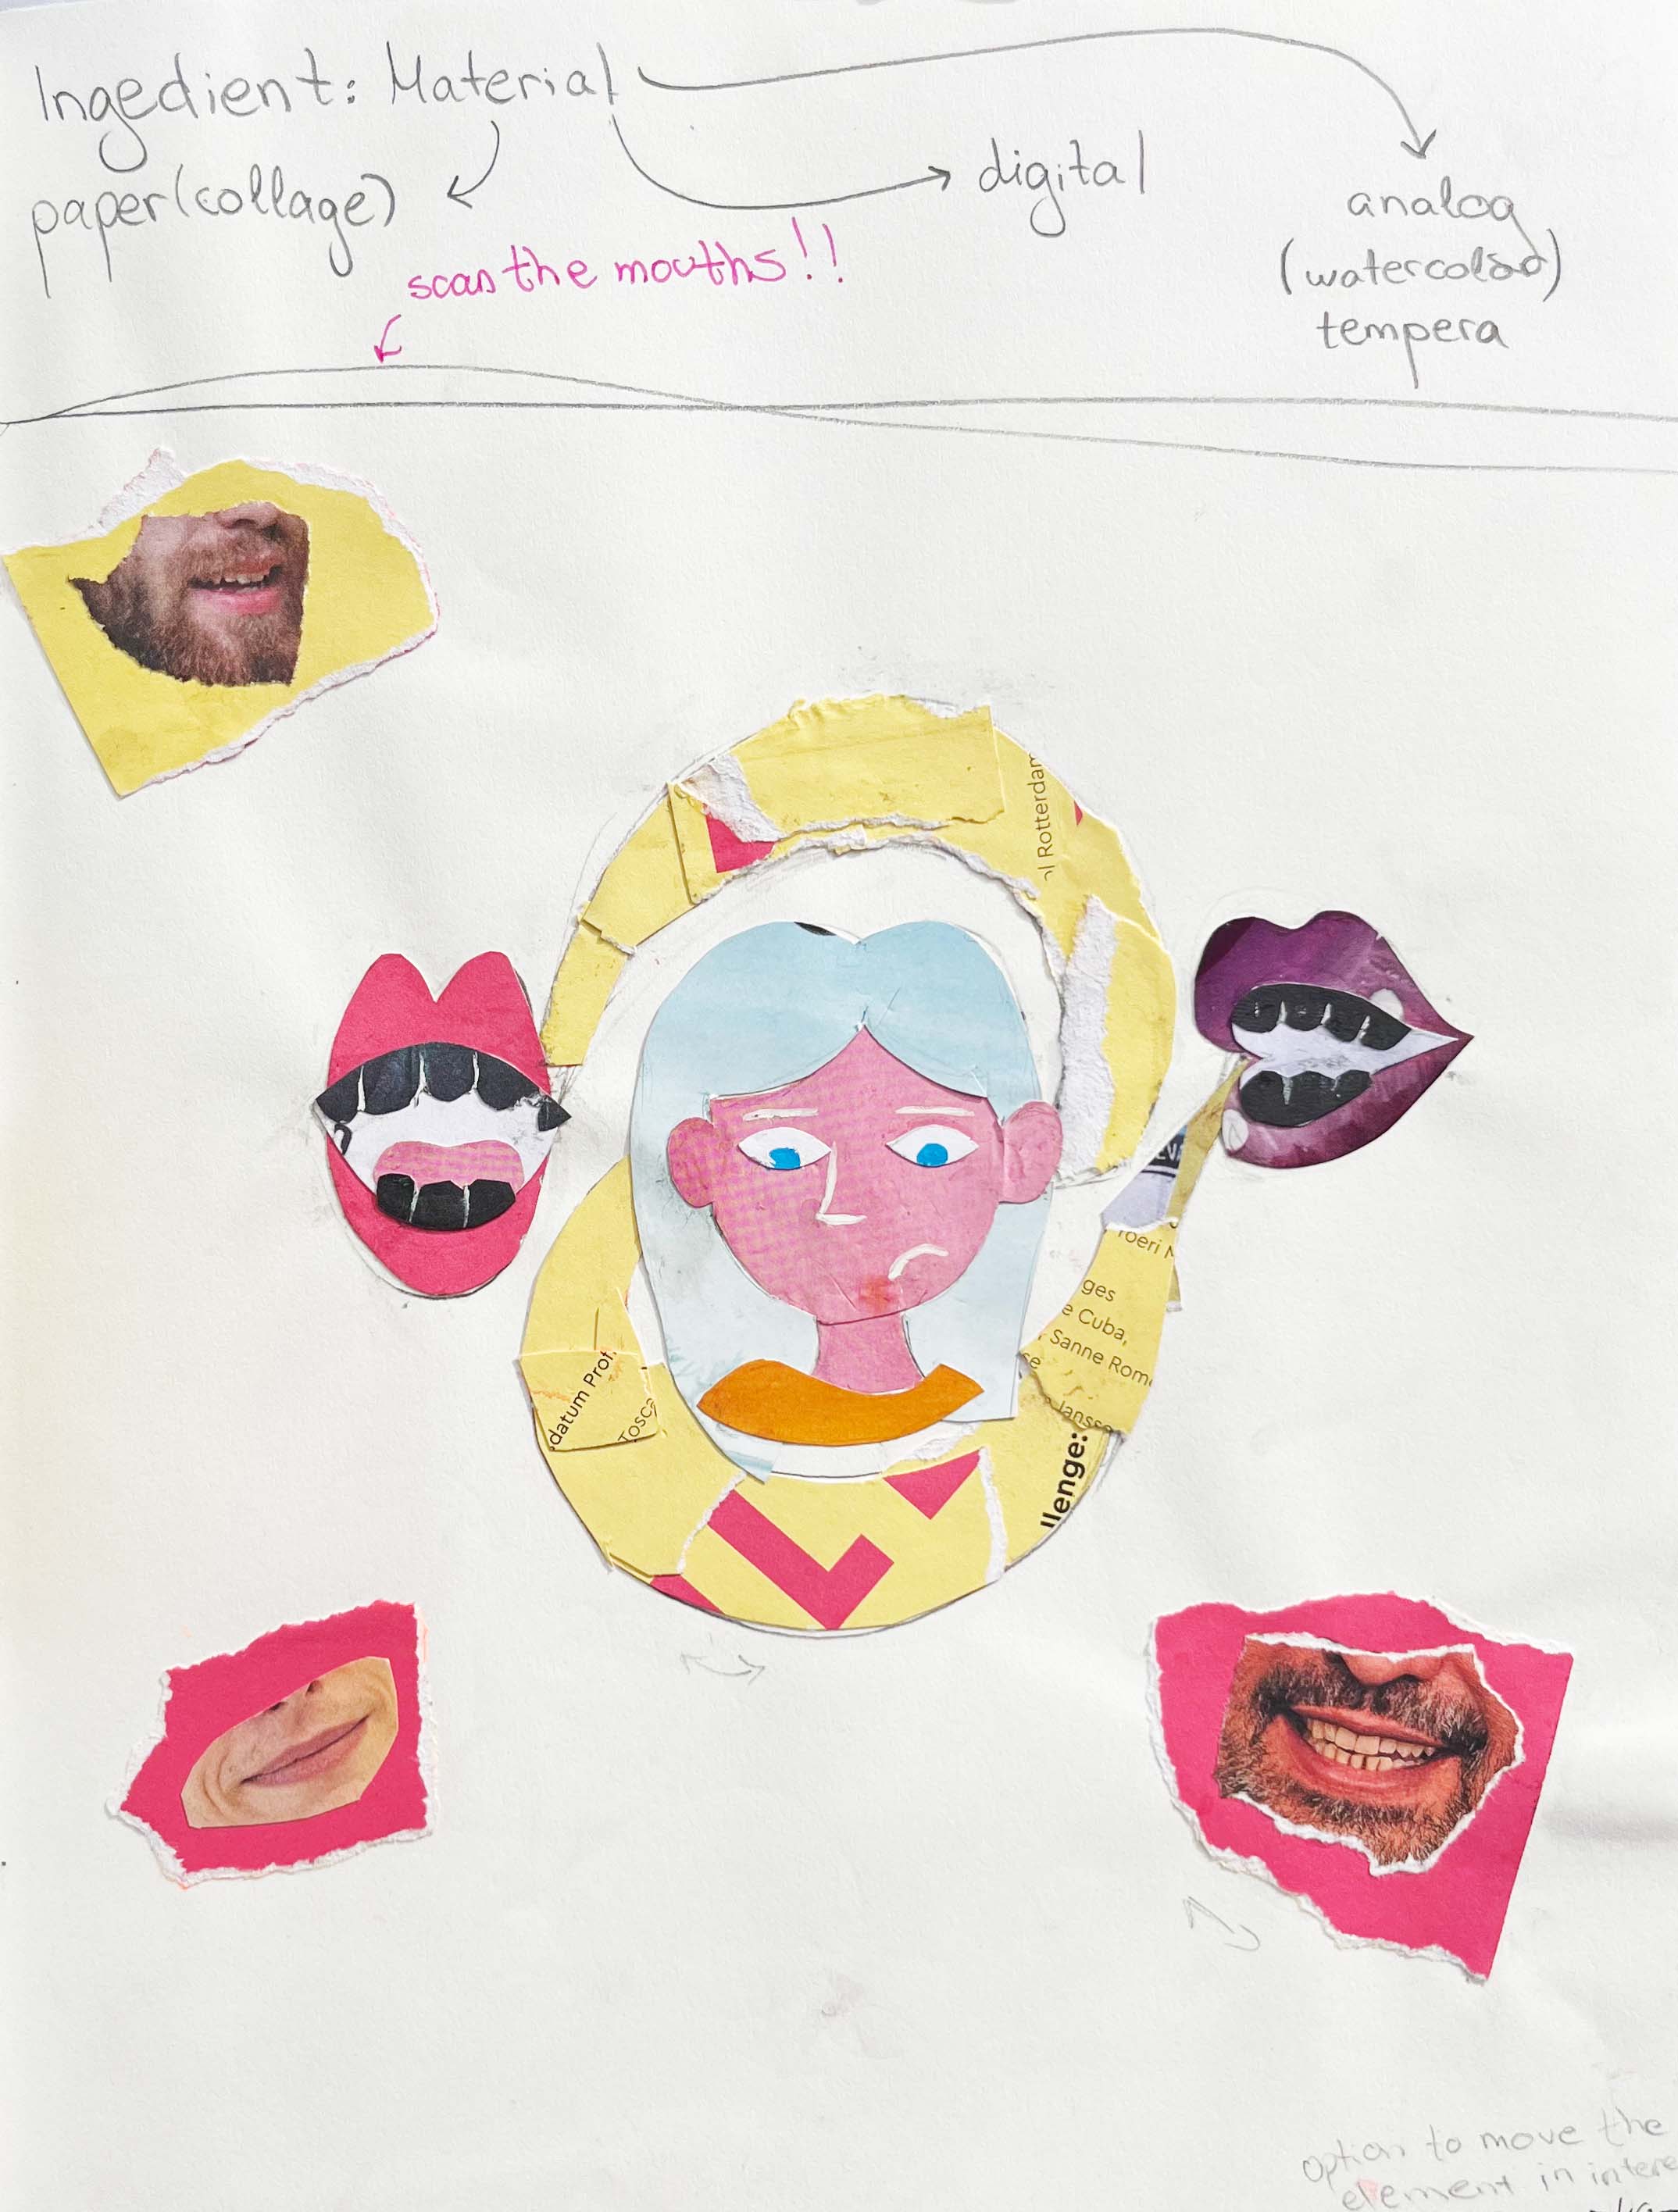 Ingedient: Material
paper(collage)
digital
analog
(watercolor)
tempera
scan the mouths!!
Rotterdam
roeri
ges
e Cuba,
Sanne Rom
se
Jansse
llenge:
datum Prof.
Tosca
option to move the
element in intere